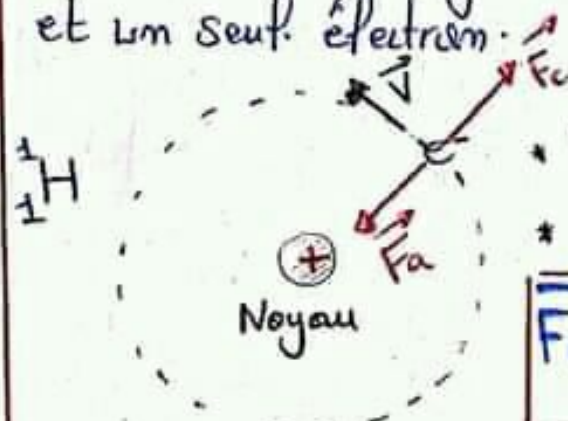 et un seul électron.
V
Fc
e-
1
1H
+
Fa
Noyau
*
*
F